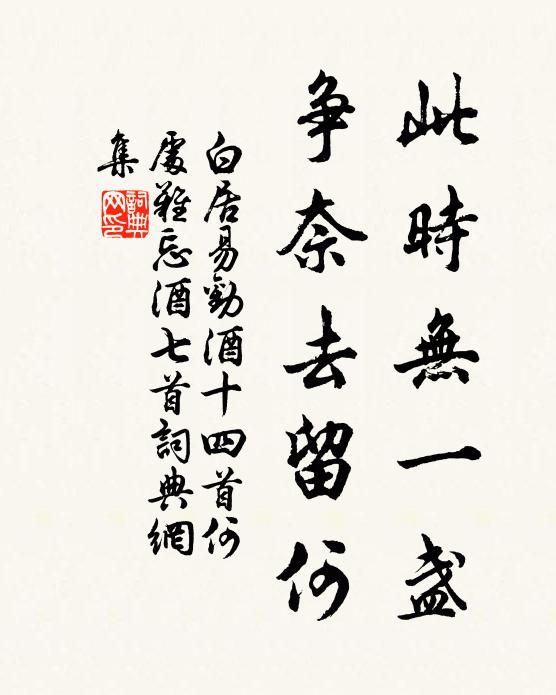 此時無一盞
争奈去留何
白居易勸酒十四首何
處難忘酒七首詞典網
集
詞典
网印